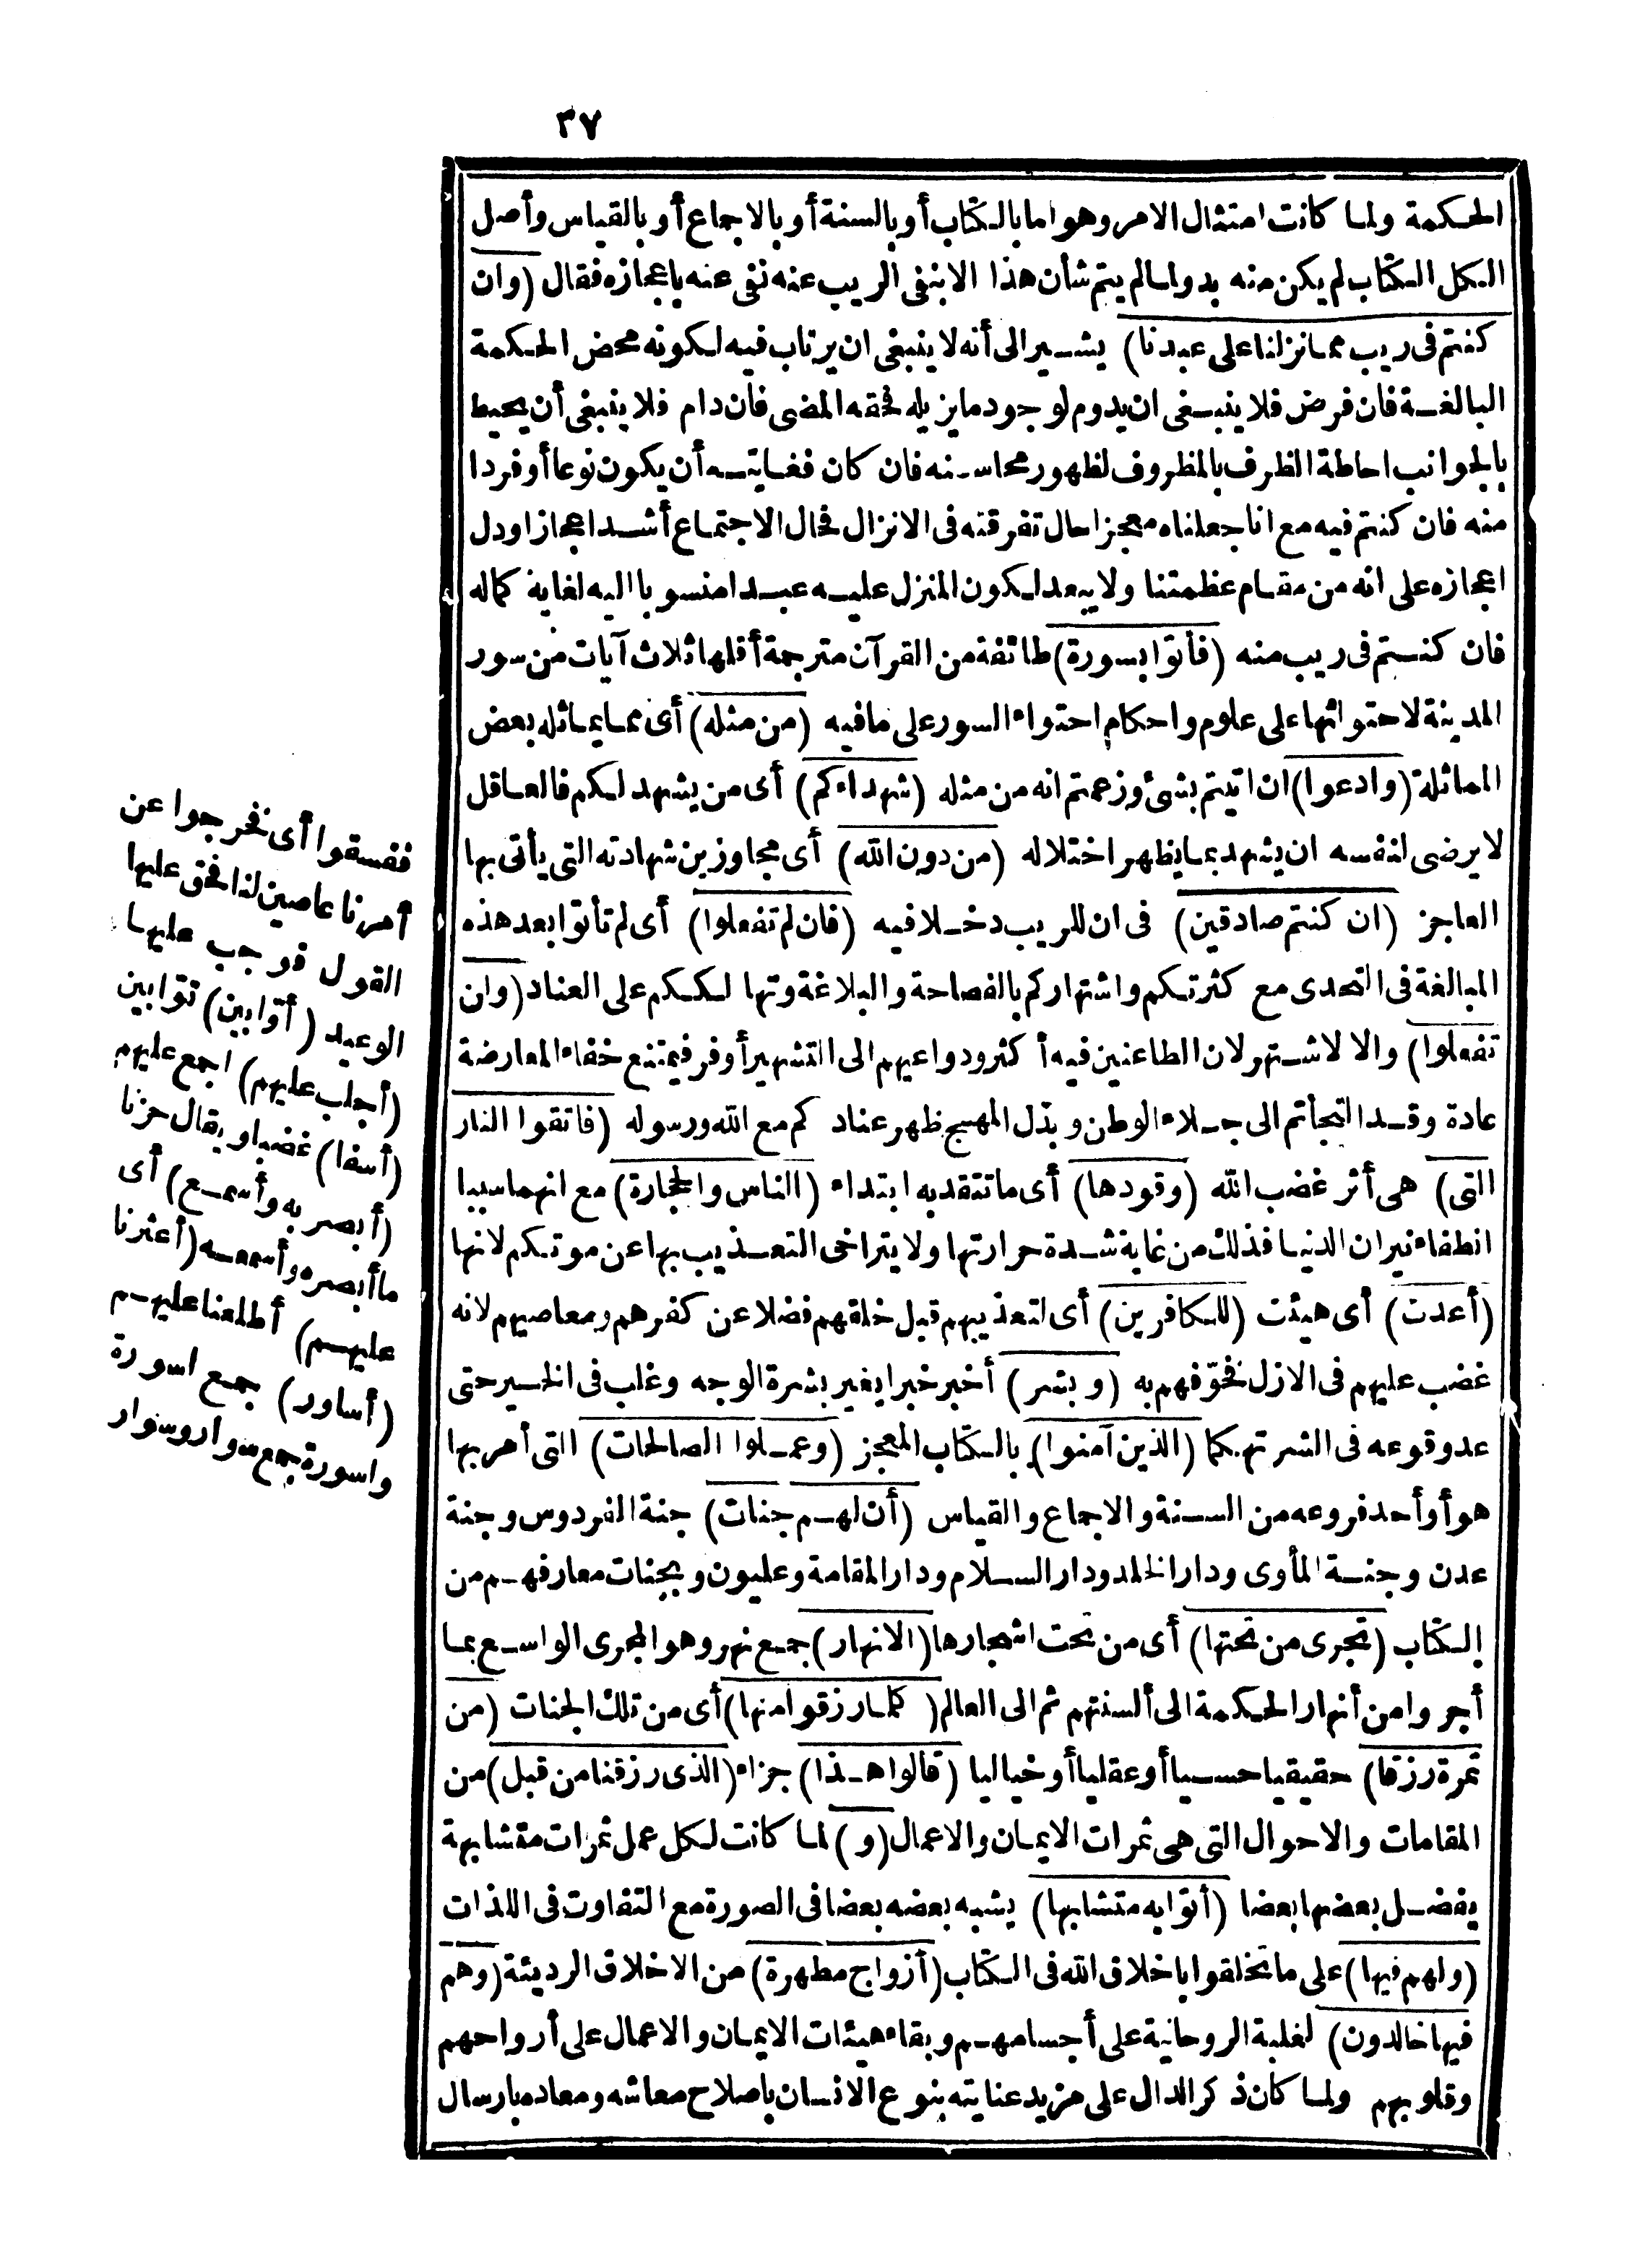 ٣٧
الحكمة ولما كانت امتثال الامر وهو اما بالكتاب أو بالسنة أو بالاجماع أو بالقياس وأصل
الكل الكتاب لم يكن منه بد ولما لم يتم شأن هذا الا بنفى الريب عنه نفى عنه باعجازه فقال (وان
كنتم فى ريب مما نزلنا على عبدنا) يشير الى أنه لا ينبغى ان يرتاب فيه لكونه محض الحكمة
البالغة فان فرض فلا ينبغى ان يدوم لوجود ما يزيله فحقه المضى فان دام فلا ينبغى أن يحيط
بالجوانب احاطة الظرف بالمظروف لظهور محاسنه فان كان فغايته أن يكون نوعا أو فردا
منه فان كنتم فيه مع انا جعلناه معجزا حال تفرقته فى الانزال فحال الاجتماع أشد اعجازا ودل
اعجازه على انه من مقام عظمتنا ولا يبعد لكون المنزل عليه عبدا منسوبا اليه لغاية كماله
فان كنتم فى ريب منه (فأتوا بسورة) طائفة من القرآن مترجمة أقلها ثلاث آيات من سور
المدينة لاحتوائها على علوم واحكام احتواء السور على ما فيه (من مثله) أى مما يماثله بعض
المماثلة (وادعوا) ان اتيتم بشئ وزعمتم انه من مثله (شهداءكم) أى من يشهد لكم فالعاقل
لا يرضى لنفسه ان يشهد بما يظهر اختلاله (من دون الله) أى مجاوزين شهادته التى يأتى بها
العاجز (ان كنتم صادقين) فى ان للريب دخلا فيه (فان لم تفعلوا) أى لم تأتوا بعد هذه
المبالغة فى التحدى مع كثرتكم واشتهاركم بالفصاحة والبلاغة وتهالككم على العناد (وان
تفعلوا) والا لاشتهر لان الطاعنين فيه أكثر ودواعيهم الى التشهير أوفر فيمتنع خفاء المعارضة
عادة وقد التجأتم الى جلاء الوطن وبذل المهج ظهر عنادكم مع الله ورسوله (فاتقوا النار
التى) هى أثر غضب الله (وقودها) أى ما تتقد به ابتداء (الناس والحجارة) مع انهما سببا
انطفاء نيران الدنيا فذلك من غاية شدة حرارتها ولا يتراخى التعذيب بها عن موتكم لانها
(أعدت) أى هيئت (للكافرين) أى لتعذيبهم قبل خلقهم فضلا عن كفرهم ومعاصيهم لانه
غضب عليهم فى الازل فخوّفهم به (وبشر) أخبر خبرا يغير بشرة الوجه وغلب فى الخير حتى
عد وقوعه فى الشر تهكما (الذين آمنوا) بالكتاب المعجز (وعملوا الصالحات) التى أمر بها
هو أو أحد فروعه من السنة والاجماع والقياس (أن لهم جنات) جنة الفردوس وجنة
عدن وجنة المأوى ودار الخلد ودار السلام ودار المقامة وعليون وبجنات معارفهم من
الكتاب (تجرى من تحتها) أى من تحت اشجارها (الانهار) جمع نهر وهو المجرى الواسع بما
أجروا من أنهار الحكمة الى ألسنتهم ثم الى العالم (كلما رزقوا منها) أى من تلك الجنات (من
ثمرة رزقا) حقيقيا حسيا أو عقليا أو خياليا (قالوا هذا) جزاء (الذى رزقنا من قبل) من
المقامات والاحوال التى هى ثمرات الايمان والاعمال (و) لما كانت لكل عمل ثمرات متشابهة
يفضل بعضها بعضا (أتوا به متشابها) يشبه بعضه بعضا فى الصورة مع التفاوت فى اللذات
(ولهم فيها) على ما تخلقوا باخلاق الله فى الكتاب (أزواج مطهرة) من الاخلاق الرديئة (وهم
فيها خالدون) لغلبة الروحانية على أجسامهم وبقاء هيئات الايمان والاعمال على أرواحهم
وقلوبهم ولما كان ذكر الدال على مزيد عنايته بنوع الانسان باصلاح معاشه ومعاده بارسال
ففسقوا أى فخرجوا عن
أمرنا عاصين لنا فحق عليها
القول فوجب عليها
الوعيد (أوّابين) توابين
(أجلب عليهم) اجمع عليهم
(أسفا) غضبا ويقال حزنا
(أبصر به وأسمع) أى
ما أبصره وأسمعه (أعثرنا
عليهم) أطلعنا عليهم
(أساور) جمع اسورة
واسورة جمع سوار وسوار